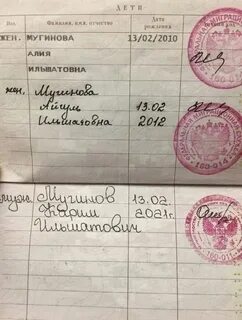 ДЕТИ
Пол Фамилия, имя, отчество Дата рождения
ЖЕН. МУГИНОВА 13/02/2010
АЛИЯ
ИЛЬШАТОВНА
жен. Мугинова
Айгуль 13.02
Ильшатовна 2012
Мугинов 13.02.
Карим 2021г.
Ильшатович